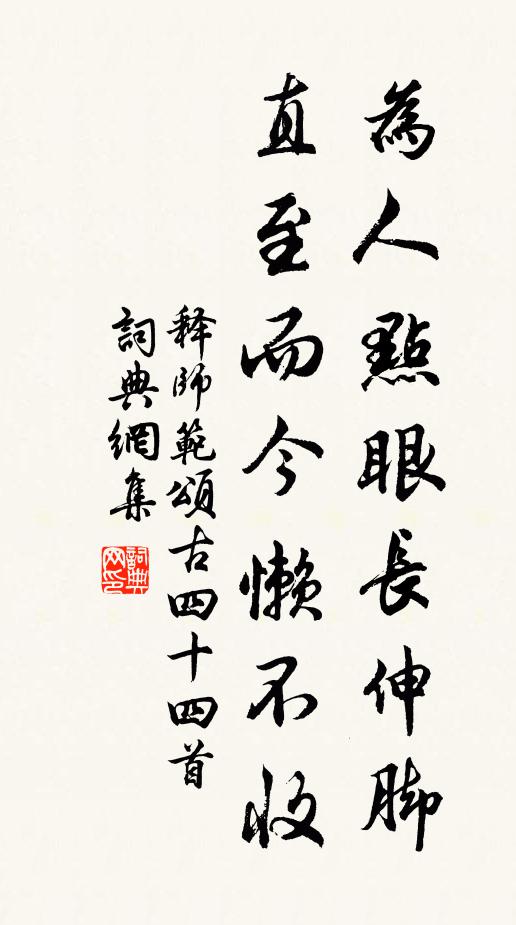 為人點眼長伸脚
直至而今懶不收
释師範頌古四十四首
詞典網集
詞典网印